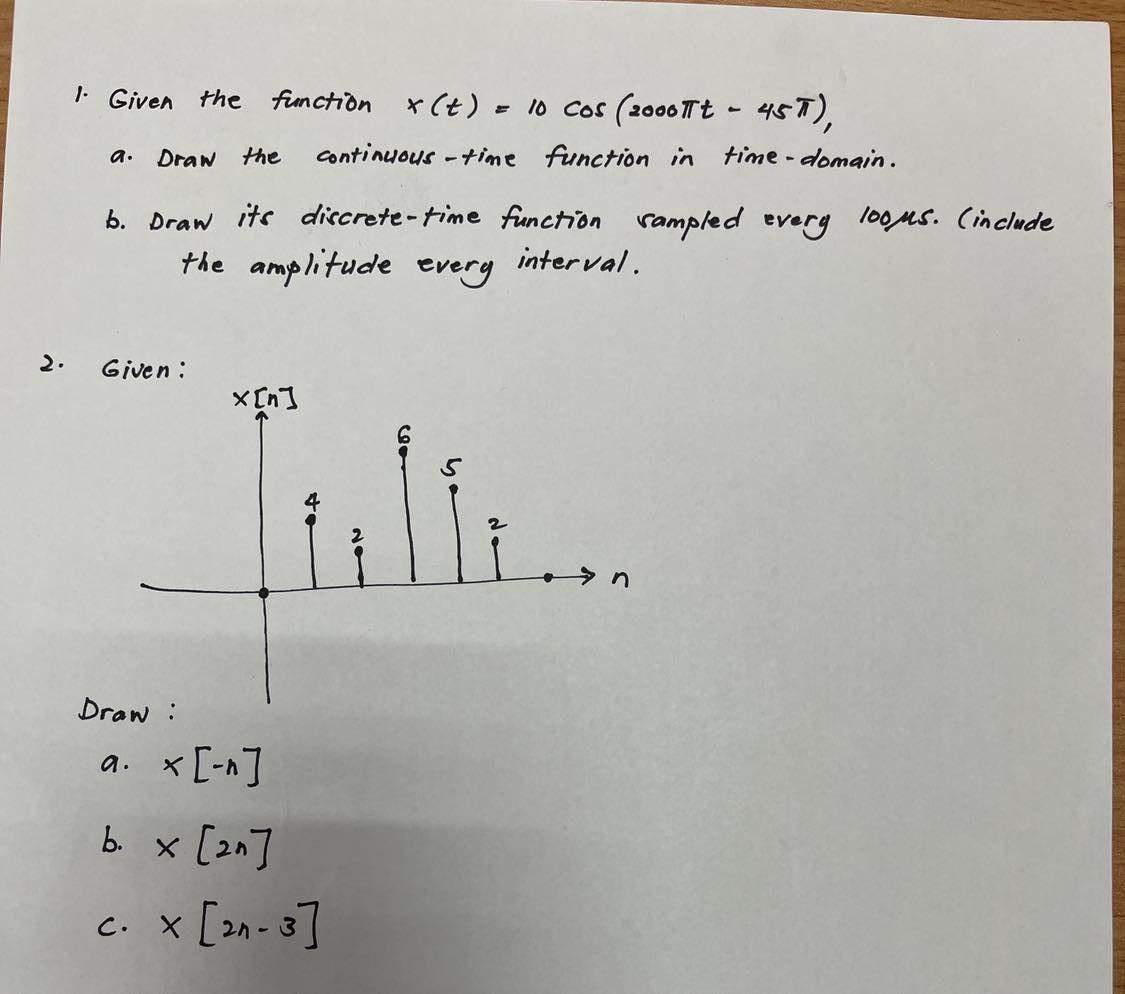 1. Given the function x(t) = 10 cos (2000πt - 45π),
a. Draw the continuous-time function in time-domain.
b. Draw its discrete-time function sampled every 100µs. (include
the amplitude every interval.
2. Given:
x[n]
6
5
4
2
2
n
Draw:
a. x[-n]
b. x[2n]
c. x[2n-3]